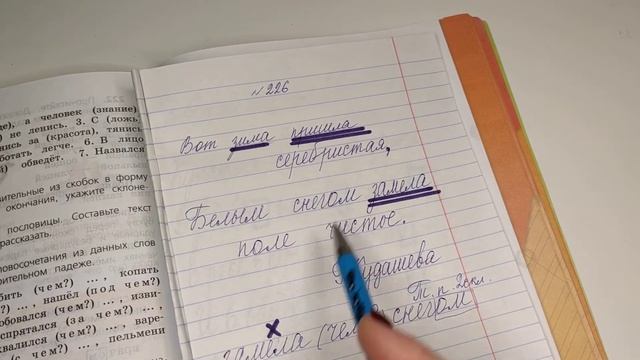 де), а человек (знание)
) не ленись. 3. С (ложь
нись за (красота), тянись
ботать легче. 6. В лицо
й) обведёт. 7. Назвался
вительные из скобок в форму
окончания, укажите склоне-
пословицы. Составьте текст
рассказать.
ловосочетания из данных слов
рительном падеже.
бить (чем?) ..., копать
) ..., нашёл (под чем?)
бовался (чем?) ..., изви-
спрятался (за чем?) ...,
(с чем?) ..., варе-
чем?) ..., пельмени
№226
Вот зима пришла
серебристая,
Белым снегом замела
поле чистое.
Кудашева
Т.п. 2скл.
замела (чем?) снегом